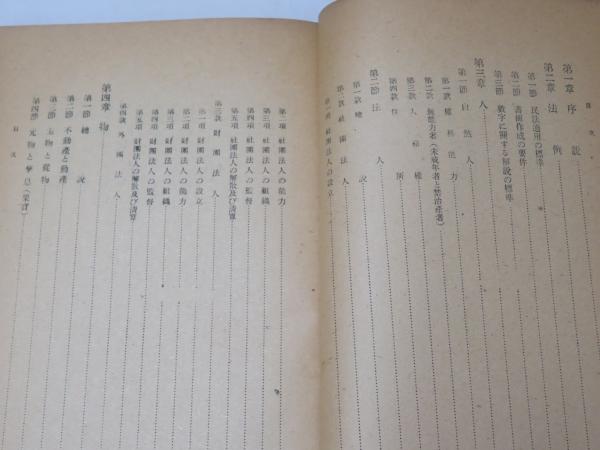 目次
第一章 序說
第二章 法例
第一節 民法適用の標準
第二節 書類作成の要件
第三節 數字に關する解說の標準
第三章 人
第一節 自然人
第一款 權利能力
第二款 無能力者(未成年者と禁治產者)
第三款 人格權
第四款 住所
第二節 法人
第一款 總說
第二款 社團法人
第一項 社團法人の設立
第二項 社團法人の能力
第三項 社團法人の組織
第四項 社團法人の監督
第五項 社團法人の解散及び清算
第三款 財團法人
第一項 財團法人の設立
第二項 財團法人の能力
第三項 財團法人の組織
第四項 財團法人の監督
第五項 財團法人の解散及び清算
第四款 外國法人
第四章 物
第一節 總說
第二節 不動產と動產
第三節 主物と從物
第四節 元物と孳息(果實)
目次